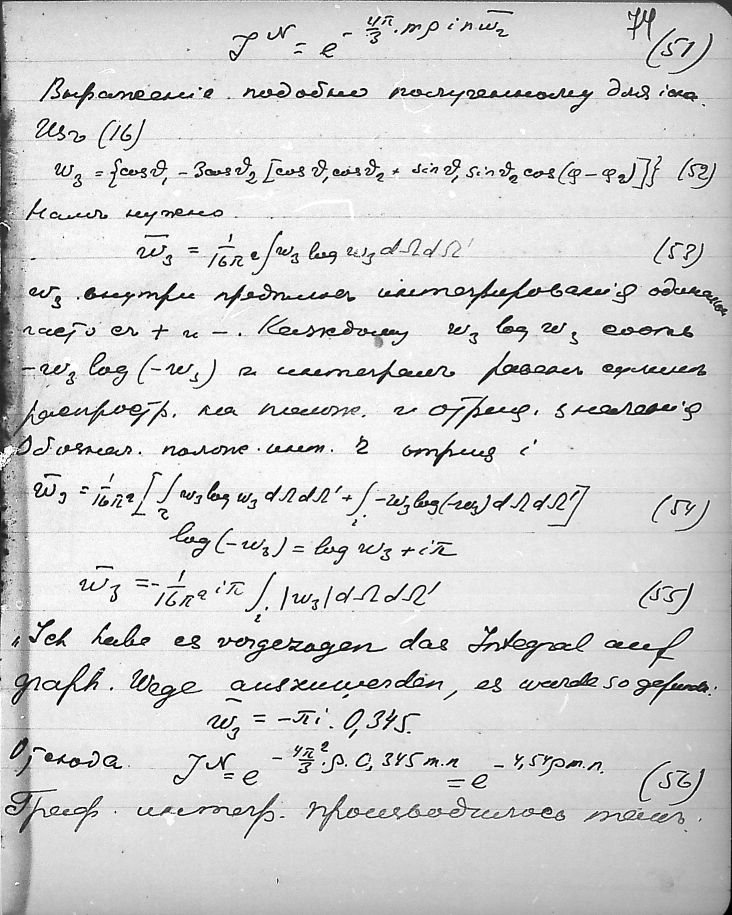 74
J^N = e^{-\frac{4\pi}{3} \cdot m\rho i n \bar{w_2}} (51)
Выраженіе подобно полученному для іона.
Изъ (16)
w_3 = {cosϑ_1 - 3cosϑ_2 [cosϑ_1 cosϑ_2 + sinϑ_1 sinϑ_2 cos(φ-φ_2)]} (52)
Намъ нужно
\bar{w_3} = \frac{1}{16π^2} ∫ w_3 log w_3 dΩ dΩ' (53)
w_3 внутри предѣловъ интегрированія одинаков
часто съ + и -. Каждому w_3 log w_3 соотв
-w_3 log(-w_3) и интегралъ равенъ суммѣ
распростр. на полож. и отриц. значенія
Обознач. полож. инт. r отриц i
\bar{w_3} = \frac{1}{16π^2} [∫_r w_3 log w_3 dΩ dΩ' + ∫_i -w_3 log(-w_3) dΩ dΩ'] (54)
log(-w_3) = log w_3 + iπ
\bar{w_3} = -\frac{1}{16π^2} iπ ∫_i |w_3| dΩ dΩ' (55)
„Ich habe es vorgezogen das Integral auf
grafh. Wege auszuwerden, es wurde so gefunde.
\bar{w_3} = -πi. 0,345.
Отсюда J^N = e^{-\frac{4π^2}{3} .ρ. 0,345 m.n} = e^{-4,54 ρ m.n.} (56)
Граф. интегр. производилось такъ.